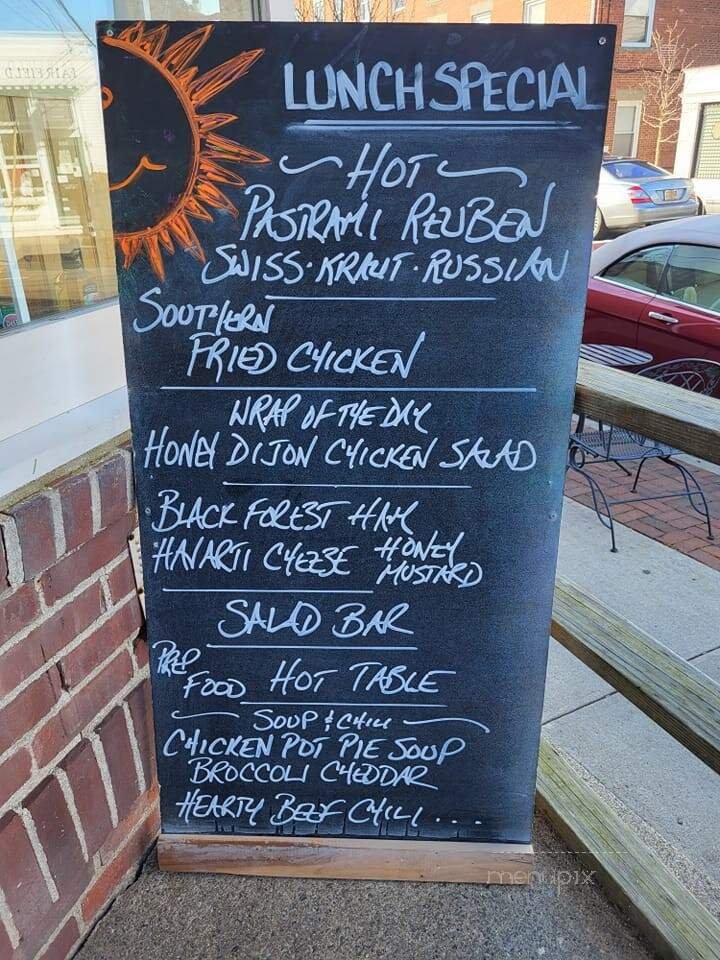 LUNCH SPECIAL
HOT
PASTRAMI REUBEN
SWISS · KRAUT · RUSSIAN
SOUTHERN
FRIED CHICKEN
WRAP OF THE DAY
HONEY DIJON CHICKEN SALAD
BLACK FOREST HAM
HAVARTI CHEESE HONEY
MUSTARD
SALAD BAR
PREP
FOOD HOT TABLE
SOUP & CHILI
CHICKEN POT PIE SOUP
BROCCOLI CHEDDAR
HEARTY BEEF CHILI ....
menupix
FAIRFIELD